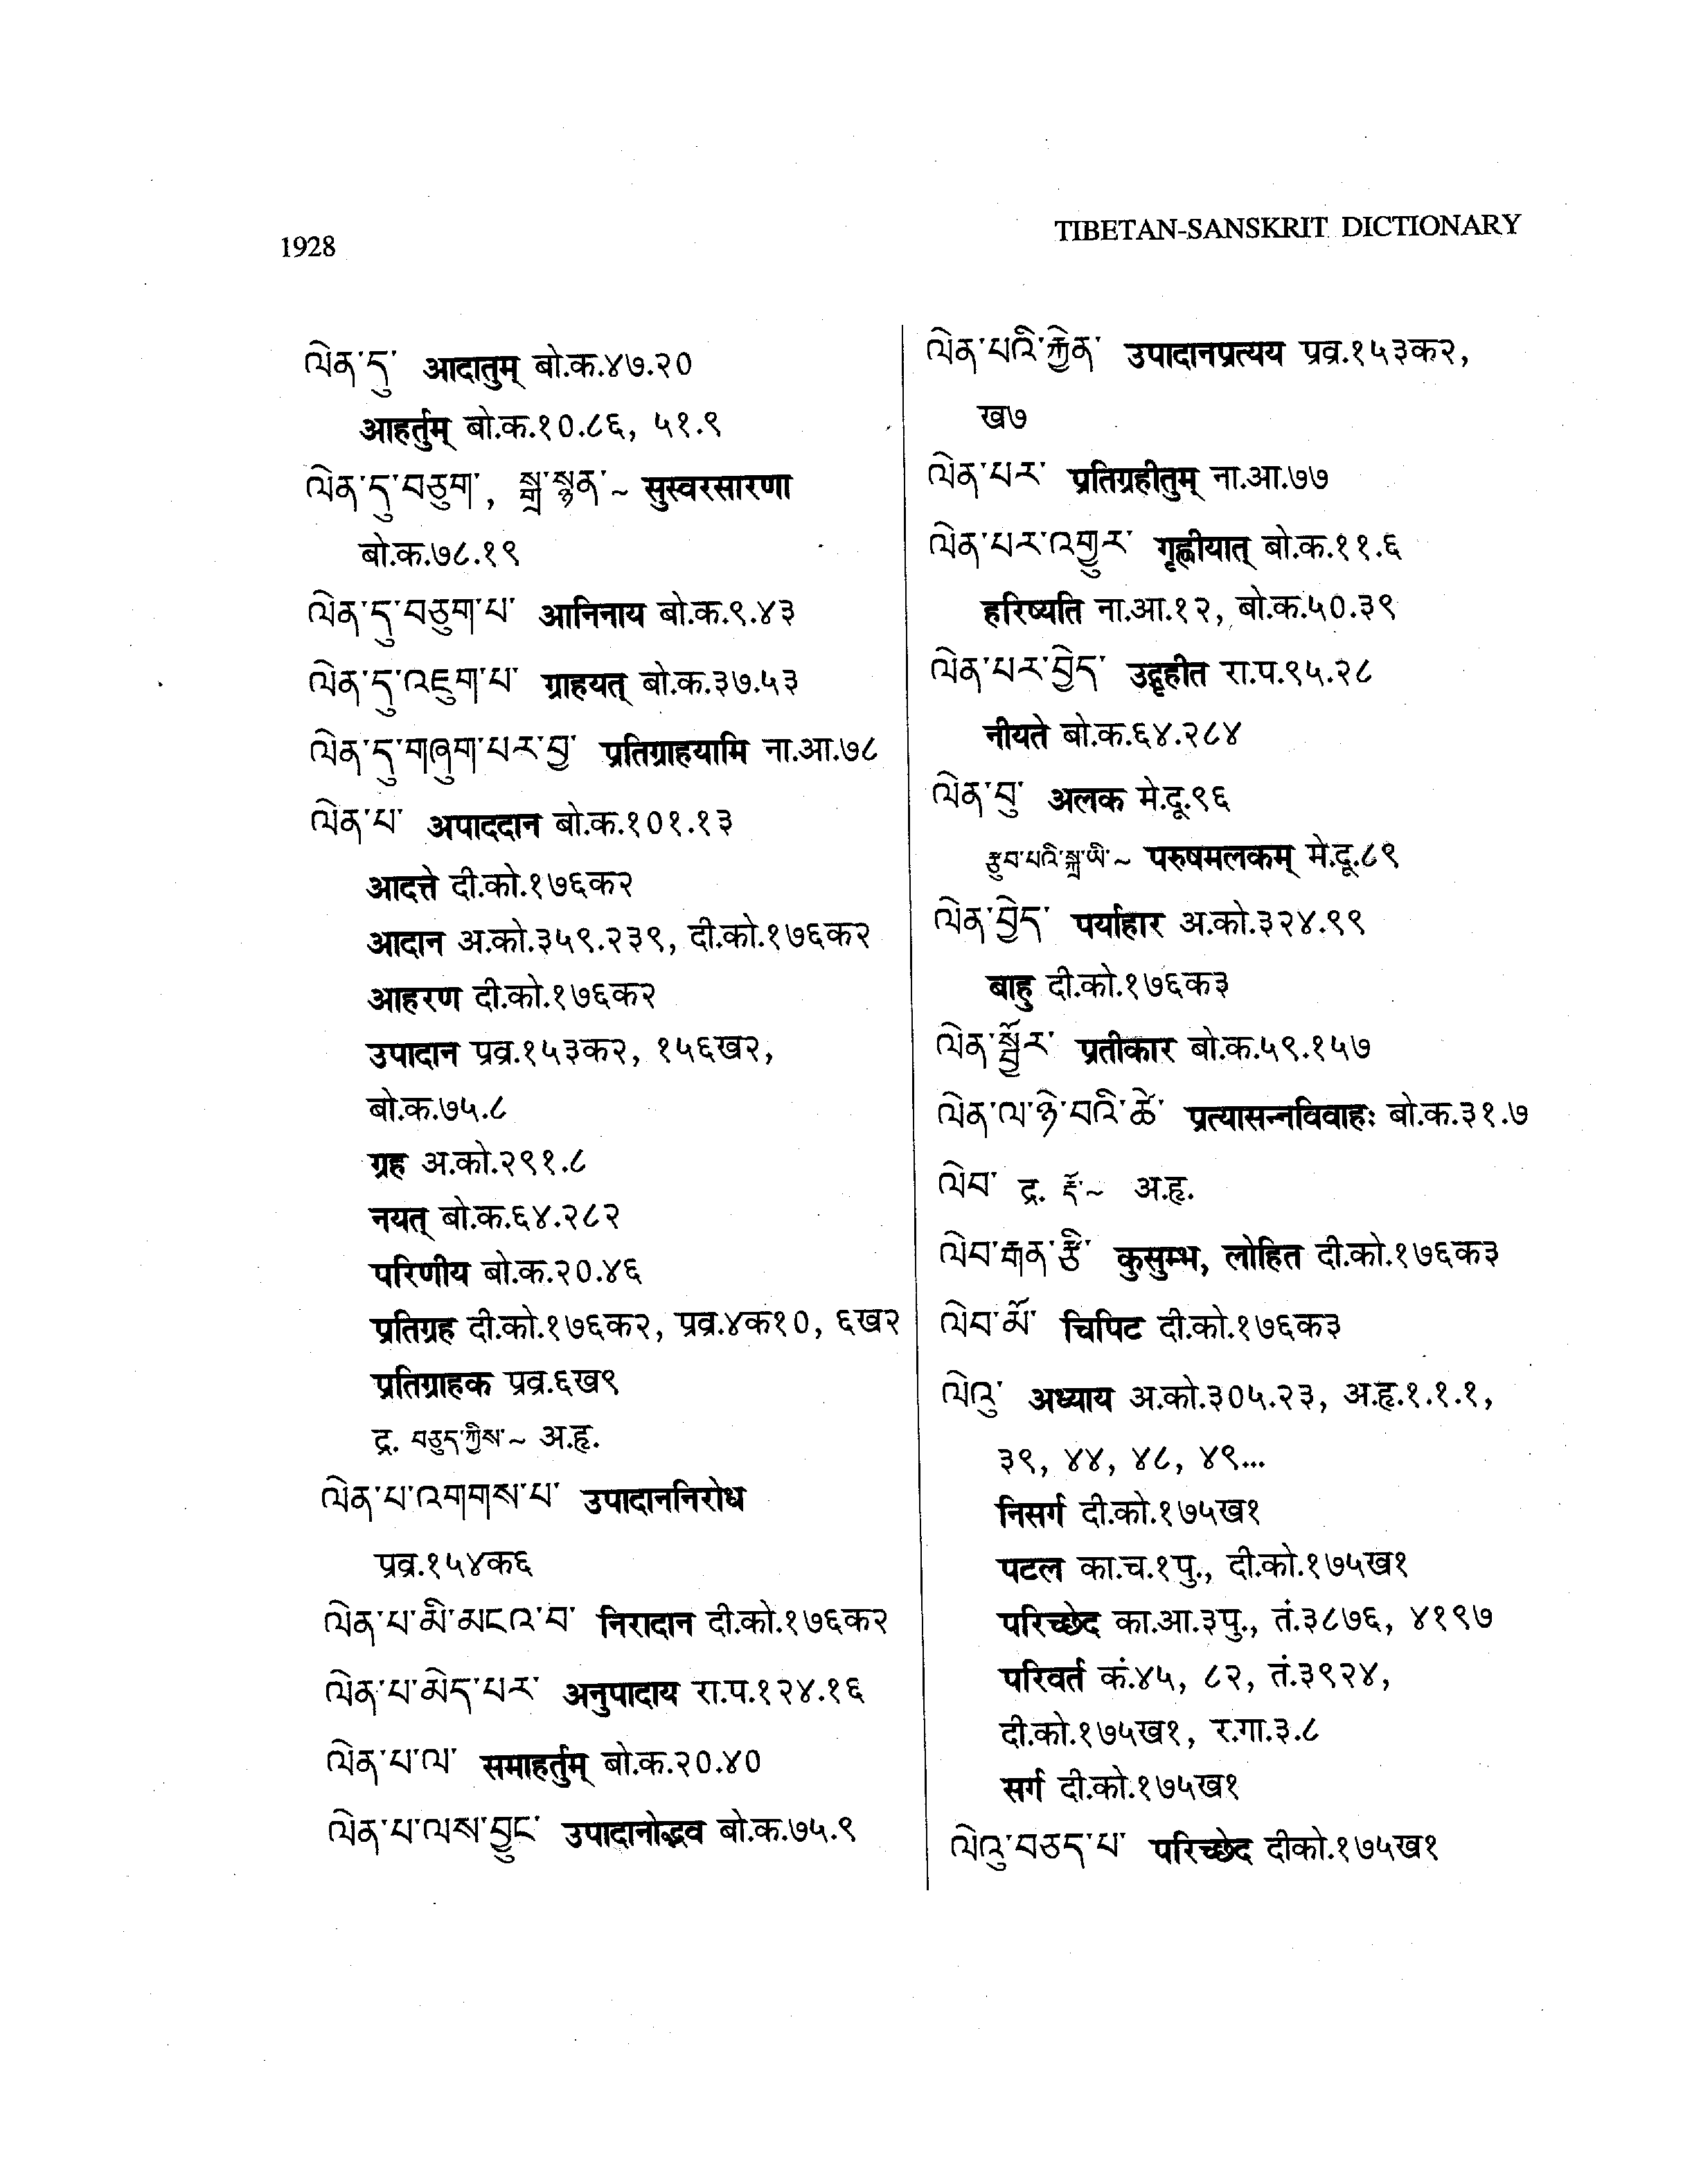 1928
TIBETAN-SANSKRIT DICTIONARY
ལེན་དུ་ आदातुम् बो.क.४७.२०
आहर्तुम् बो.क.१०.८६, ५१.९
ལེན་དུ་བཅུག་, སྒྲ་སྙན་~ सुस्वरसारणा
बो.क.७८.१९
ལེན་དུ་བཅུག་པ་ आनिनाय बो.क.९.४३
ལེན་དུ་འཇུག་པ་ ग्राहयत् बो.क.३७.५३
ལེན་དུ་གཞུག་པར་བྱ་ प्रतिग्राहयामि ना.आ.७८
ལེན་པ་ अपाददान बो.क.१०१.१३
आदत्ते दी.को.१७६क२
आदान अ.को.३५९.२३९, दी.को.१७६क२
आहरण दी.को.१७६क२
उपादान प्रव्र.१५३क२, १५६ख२,
बो.क.७५.८
ग्रह अ.को.२९१.८
नयत् बो.क.६४.२८२
परिणीय बो.क.२०.४६
प्रतिग्रह दी.को.१७६क२, प्रव्र.४क१०, ६ख२
प्रतिग्राहक प्रव्र.६ख९
द्र. བཅུད་ཀྱིས་~ अ.हृ.
ལེན་པ་འགགས་པ་ उपादाननिरोध
प्रव्र.१५४क६
ལེན་པ་མི་མངའ་བ་ निरादान दी.को.१७६क२
ལེན་པ་མེད་པར་ अनुपादाय रा.प.१२४.१६
ལེན་པ་ལ་ समाहर्तुम् बो.क.२०.४०
ལེན་པ་ལས་བྱུང་ उपादानोद्भव बो.क.७५.९
ལེན་པའི་རྐྱེན་ उपादानप्रत्यय प्रव्र.१५३क२,
ख७
ལེན་པར་ प्रतिग्रहीतुम् ना.आ.७७
ལེན་པར་འགྱུར་ गृह्णीयात् बो.क.११.६
हरिष्यति ना.आ.१२, बो.क.५०.३९
ལེན་པར་བྱེད་ उद्गृहीत रा.प.९५.२८
नीयते बो.क.६४.२८४
ལེན་བུ་ अलक मे.दू.९६
རྩུབ་པའི་སྐྲ་ཡི་~ परुषमलकम् मे.दू.८९
ལེན་བྱེད་ पर्याहार अ.को.३२४.९९
बाहु दी.को.१७६क३
ལེན་སྦྱོར་ प्रतीकार बो.क.५९.१५७
ལེན་ལ་ཉེ་བའི་ཚེ་ प्रत्यासन्नविवाहः बो.क.३१.७
ལེབ་ द्र. རྡོ་~ अ.हृ.
ལེབ་རྒན་རྩི་ कुसुम्भ, लोहित दी.को.१७६क३
ལེབ་མོ་ चिपिट दी.को.१७६क३
ལེའུ་ अध्याय अ.को.३०५.२३, अ.हृ.१.१.१,
३९, ४४, ४८, ४९...
निसर्ग दी.को.१७५ख१
पटल का.च.१पु., दी.को.१७५ख१
परिच्छेद का.आ.३पु., तं.३८७६, ४१९७
परिवर्त कं.४५, ८२, तं.३९२४,
दी.को.१७५ख१, र.गा.३.८
सर्ग दी.को.१७५ख१
ལེའུ་བཅད་པ་ परिच्छेद दीको.१७५ख१